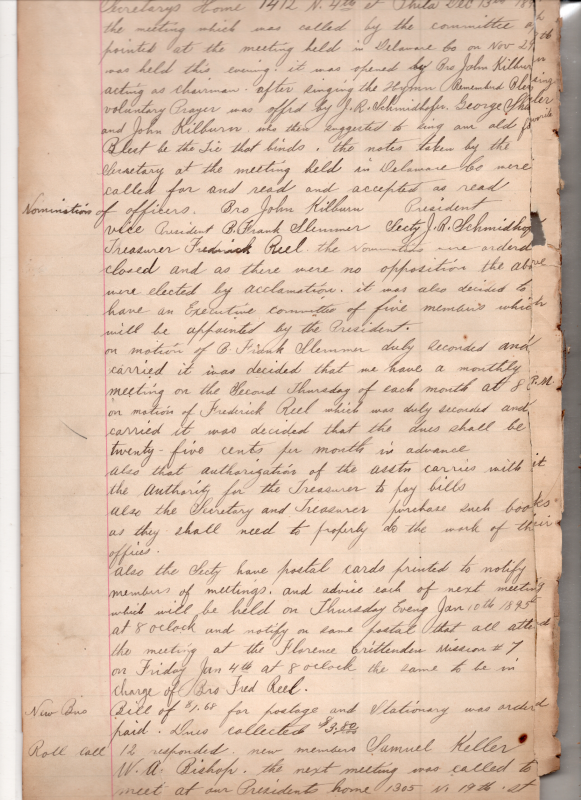 Secretarys Home 1412 N. 4th st Phila Dec 13th 189
the meeting which was called by the committee ap
pointed at the meeting held in Delaware Co on Nov 29th
was held this evening. it was opened by Bro John Kilburn
acting as chairman. after singing the Hymn Remembrd
voluntary Prayer was offrd by J. R. Schmidhofr. George
and John Kilburn. who then suggested to sing our old favorite
Blest be the Tie that binds. the notes taken by the
Secretary at the meeting held in Delaware Co were
called for and read and accepted as read
Nominations of officers. Bro John Kilburn President
vice President B. Frank Slemmer Secty J. R. Schmidhof
Treasurer Fredrick Reel. the Nominations were orderd
closed and as there were no opposition the above
were elected by acclamation. it was also decided to
have an Executive committee of five members which
will be appointed by the President.
on motion of B Frank Slemmer duly seconded and
carried it was decided that we have a monthly
meeting on the Second Thursday of each month at 8 P.M.
on motion of Fredrick Reel which was duly seconded and
carried it was decided that the dues shall be
twenty-five cents per month in advance
also that authorization of the assets carries with it
the authority for the Treasurer to pay bills
also the Secretary and Treasurer purchase such books
as they shall need to properly do the work of their
offices.
also the Secty have postal cards printed to notify
members of meetings. and advise each of next meeting
which will be held on Thursday Eveng Jan 10th 1895
at 8 oclock and notify on same postal that all attend
the meeting at the Florence Crittenden Mission # 7
on Friday Jan 4th at 8 oclock the same to be in
charge of Bro Fred Reel.
New Bus Bill of $1.68 for postage and Stationary was orderd
paid. Dues collected $3.80
Roll call 12 responded. new members Samuel Keller
W. A. Bishop. the next meeting was called to
meet at our Presidents home 1305 N. 19th st